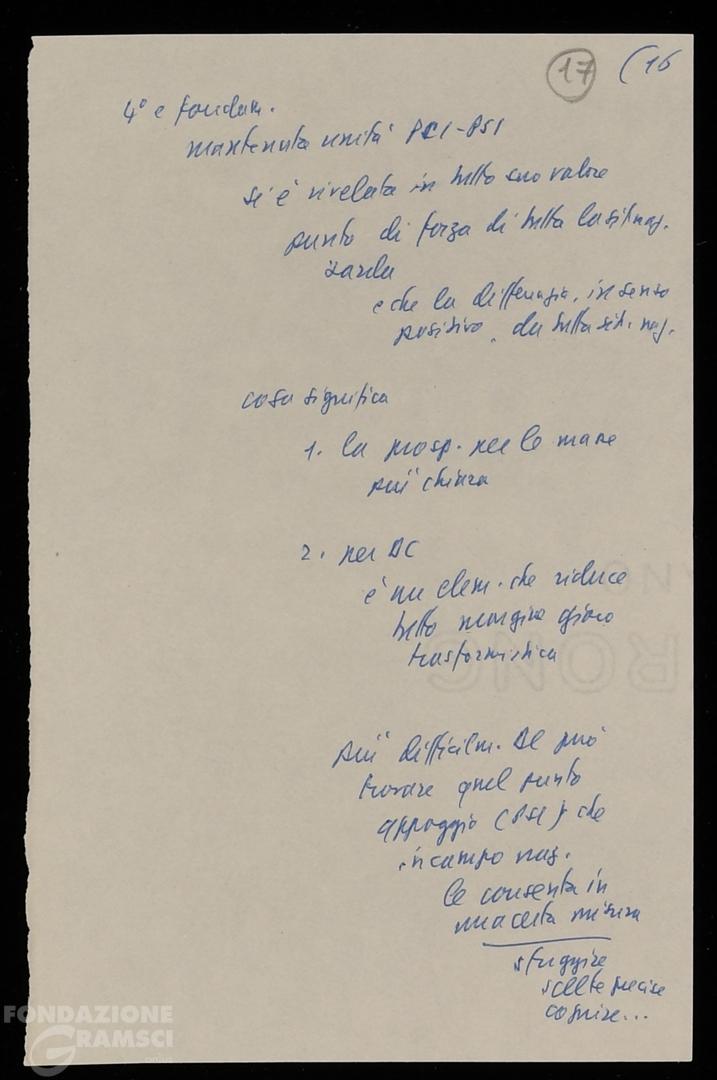 17 (16
4° e fondam.
mantenuta unità PCI-PSI
si è rivelata in tutto suo valore
punto di forza di tutta la sit. naz.
sarda
e che la differenzia, in senso
positivo, da tutta sit. naz.
cosa significa
1. la prosp. per le masse
più chiara
2. per DC
è un elem. che riduce
tutto margine gioco
trasformistica
più difficilm. DC può
trovare quel punto
appoggio (PSI) che
in campo naz.
le consenta in
una certa misura
sfuggire
scelte precise
coprire...
FONDAZIONE
GRAMSCI
onlus